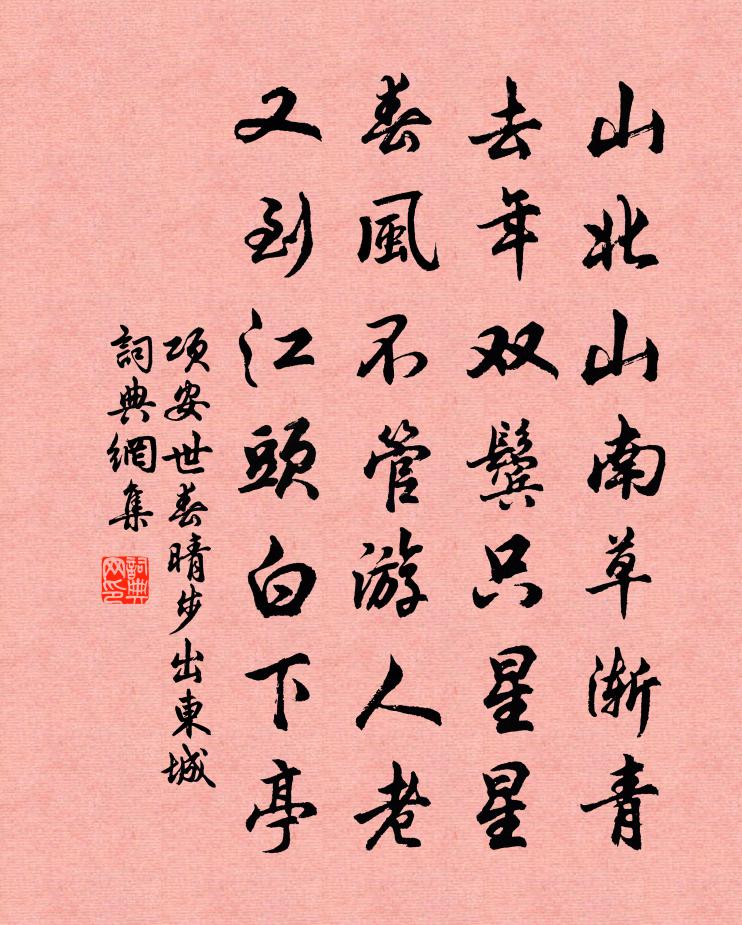 山北山南草漸青
去年双鬢只星星
春風不管游人老
又到江頭白下亭
項安世春晴步出東城
詞典網集
詞典网印